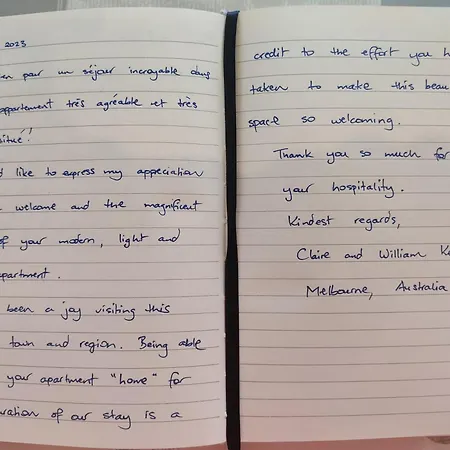 2023
par un séjour incroyable dans
appartement très agréable et très
situé!
like to express my appeciation
welcome and the magnificent
of your modern, light and
apartment.
been a joy visiting this
town and region. Being able
your apartment "home" for
of our stay is a
credit to the effort you
taken to make this
space so welcoming.
Thank you so much for
your hospitality.
Kindest regards,
Claire and William
Melbourne, Australia